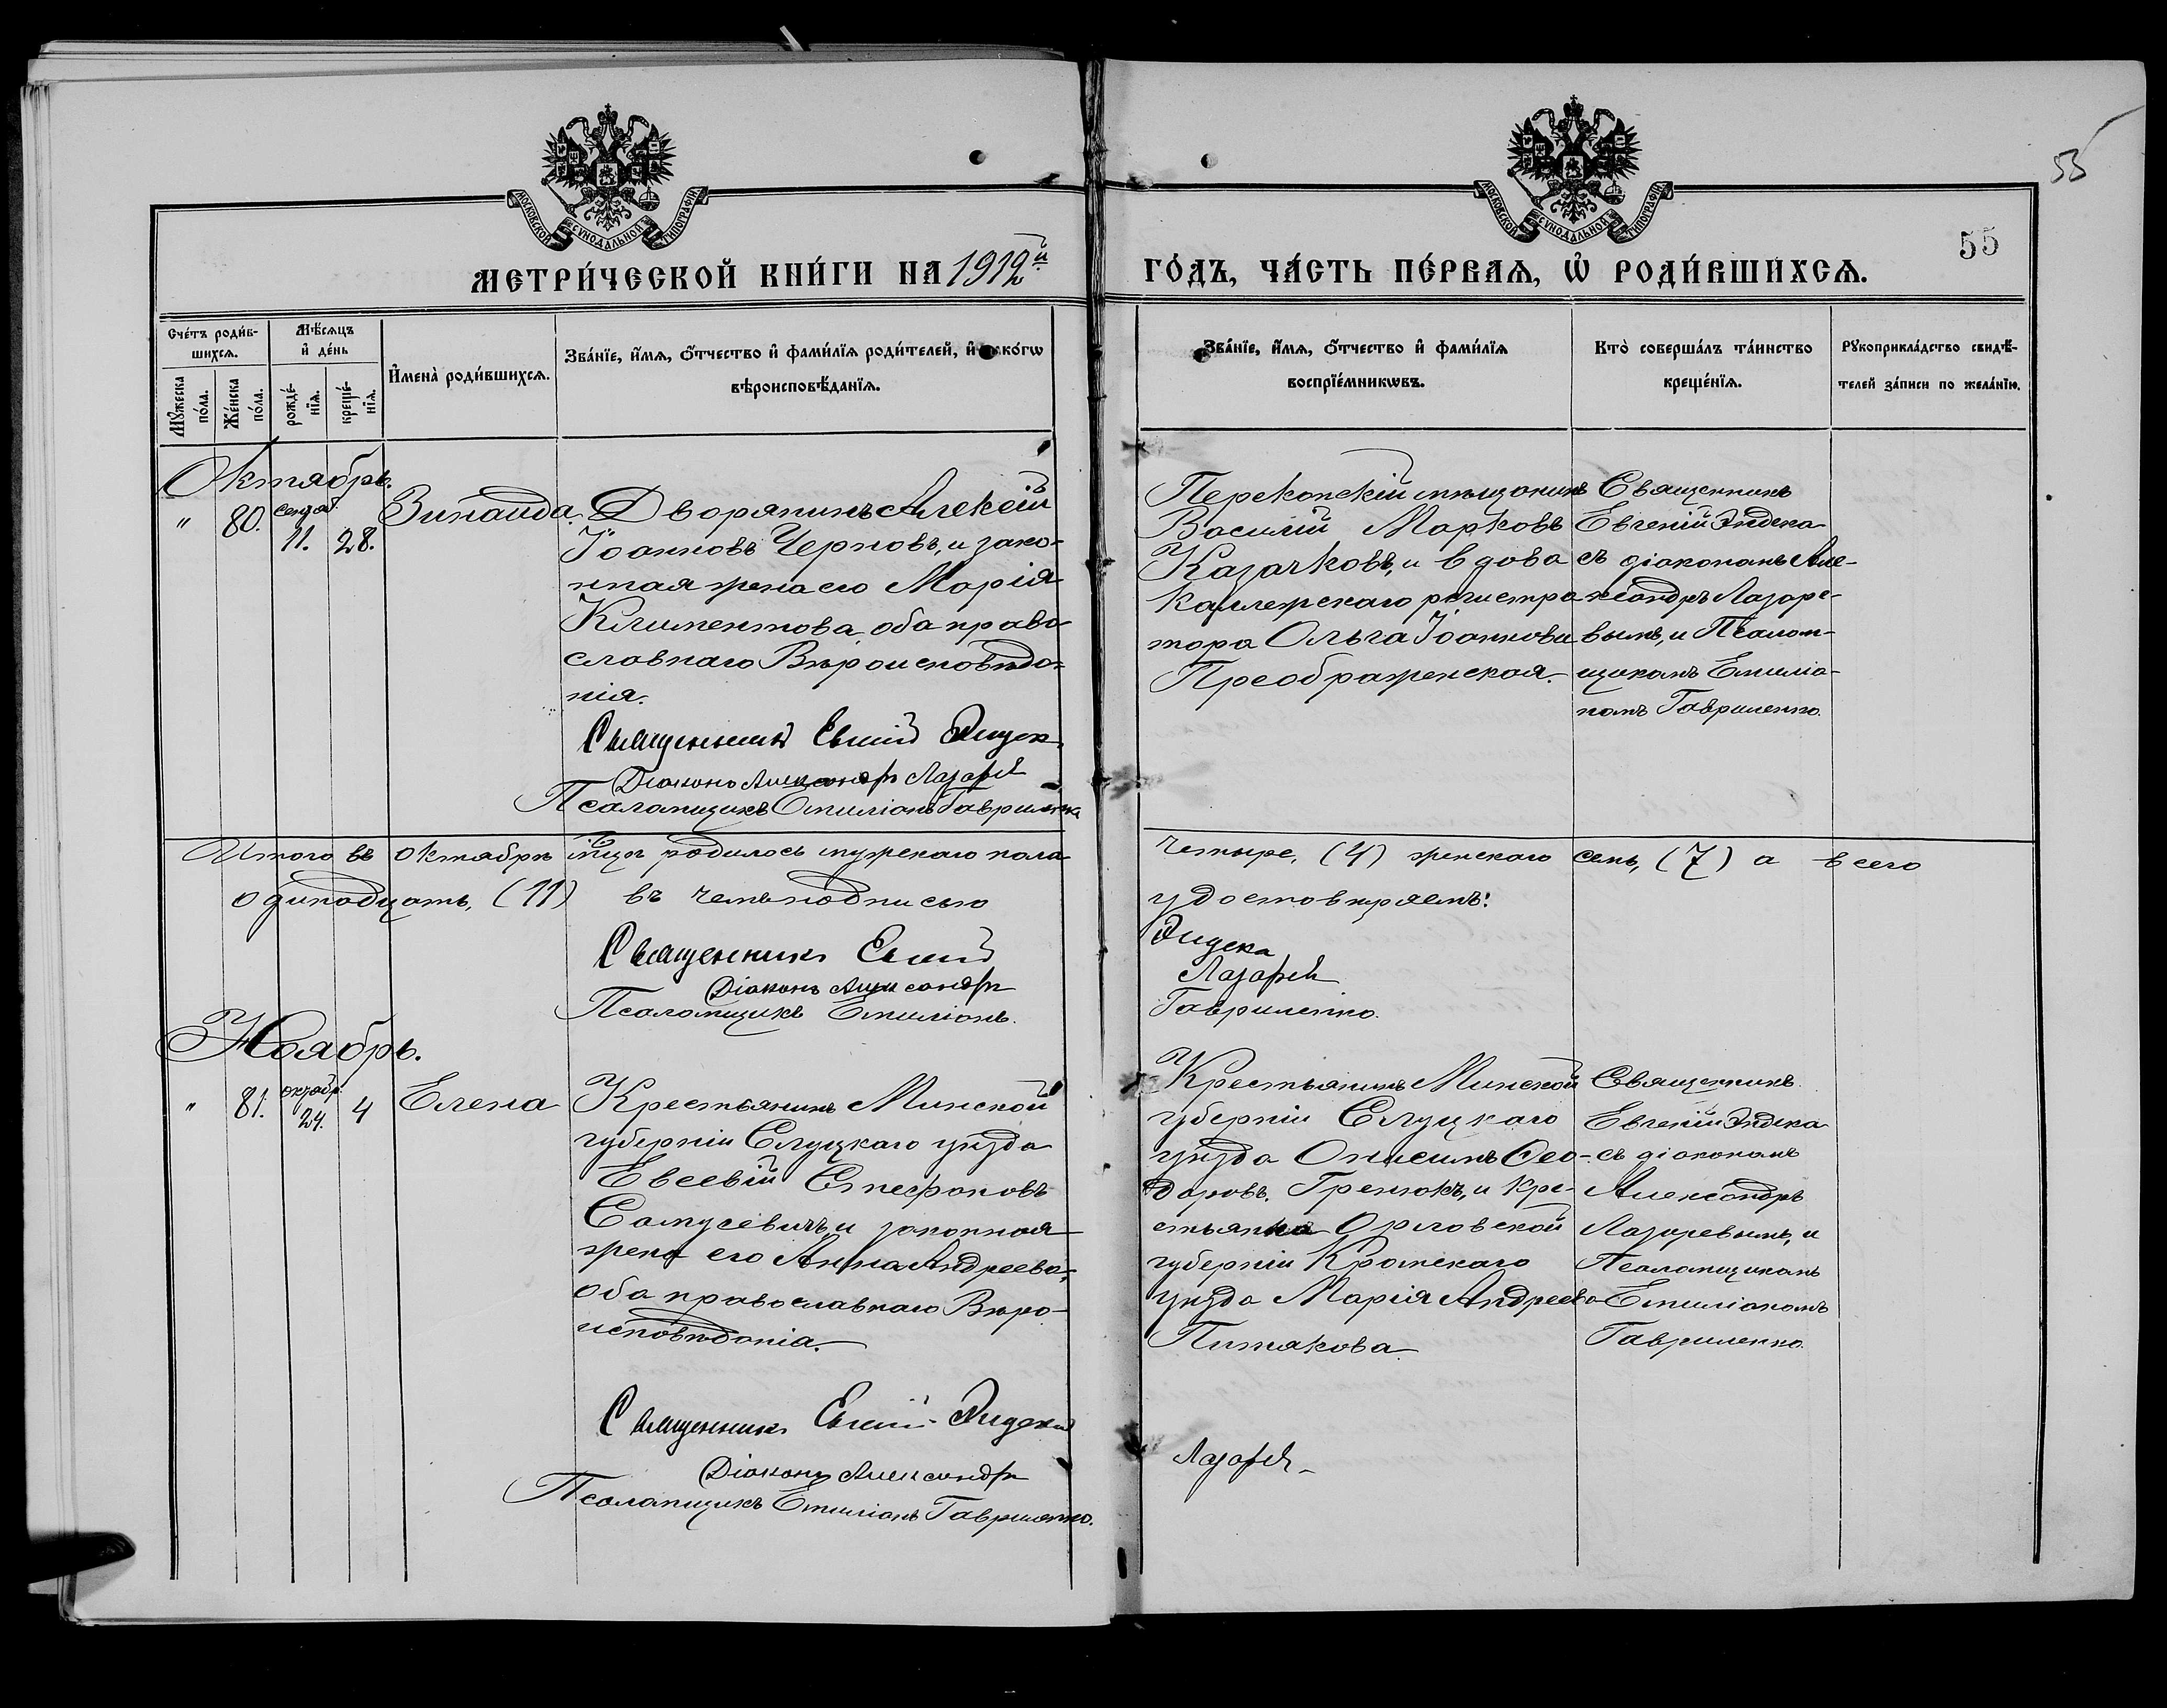 55
55
МОСКОВСКОЙ СѴНОДАЛЬНОЙ ТИПОГРАФІИ
МОСКОВСКОЙ СѴНОДАЛЬНОЙ ТИПОГРАФІИ
МЕТРИ́ЧЕСКОЙ КНИ́ГИ НА 1912й ГО́ДЪ, ЧА́СТЬ ПЕ́РВАѦ, Ѡ҆ РОДИ́ВШИХСѦ.
Сче́тъ роди́в-
шихсѧ.
Мꙋ́жеска
по́ла.
Же́нска
по́ла.
Мѣ́сѧцъ
и҆ де́нь
рожде́-
нїѧ.
креще́-
нїѧ.
И҆мена̀ роди́вшихсѧ.
Зва́нїе, и҆́мѧ, ѻ҆́тчество и҆ фами́лїѧ роди́телей, и҆ како́гѡ
вѣроисповѣ́данїѧ.
Зва́нїе, и҆́мѧ, ѻ҆́тчество и҆ фами́лїѧ
воспрїе́мникѡвъ.
Кто̀ соверша́лъ та́инство
креще́нїѧ.
Рꙋкоприкла́дство свидѣ́-
телей за́писи по жела́нїю.
Октябрь.
" 80. сентяб. 11. 28. Зинаида.
Дворянинъ Алексій
Іоанновъ Черновъ, и зако-
нная жена его Марія
Климентова, оба право-
славнаго Вѣроисповѣда-
нія.
Священникъ Евгеній Эндека
Діаконъ Александръ Лазаревъ
Псаломщикъ Емиліанъ Гавриленко
Перекопскій мѣщанинъ
Василій Марковъ
Казачковъ, и вдова
Каллежскаго регистра-
тора Ольга Іоаннова
Преображенская.
Священникъ
Евгеній Эндека
съ діакономъ Але-
ксандръ Лазаре-
вымъ, и Псалом-
щикомъ Емиліа-
номъ Гавриленко.
Итого въ октябрѣ мцѣ родилось мужскаго пола четыре, (4) женскаго семь, (7) а всего
одинадцать, (11) въ чемъ подписью удостовѣряемъ:
Священникъ Евгеній Эндека
Діаконъ Александръ Лазаревъ
Псаломщикъ Емиліанъ Гавриленко.
Ноябрь.
" 81. октябр. 24. 4 Елена
Крестьянинъ Минской
губерніи Слуцкаго уѣзда
Евсевій Стефановъ
Самусевичъ, и законная
жена его Анна Андреева,
оба православнаго Вѣро-
исповѣданія.
Священникъ Евгеній Эндека
Діаконъ Александръ Лазаревъ
Псаломщикъ Емиліанъ Гавриленко.
Крестьянинъ Минской
губерніи Слуцкаго
уѣзда Онисимъ Ѳео-
доровъ. Гренюкъ, и кре-
стьянка Орловской
губерніи Кромскаго
уѣзда Марія Андреева
Питякова.
Священникъ
Евгеній Эндека
съ діакономъ
Александръ
Лазаревымъ, и
Псаломщикомъ
Емиліаномъ
Гавриленко.